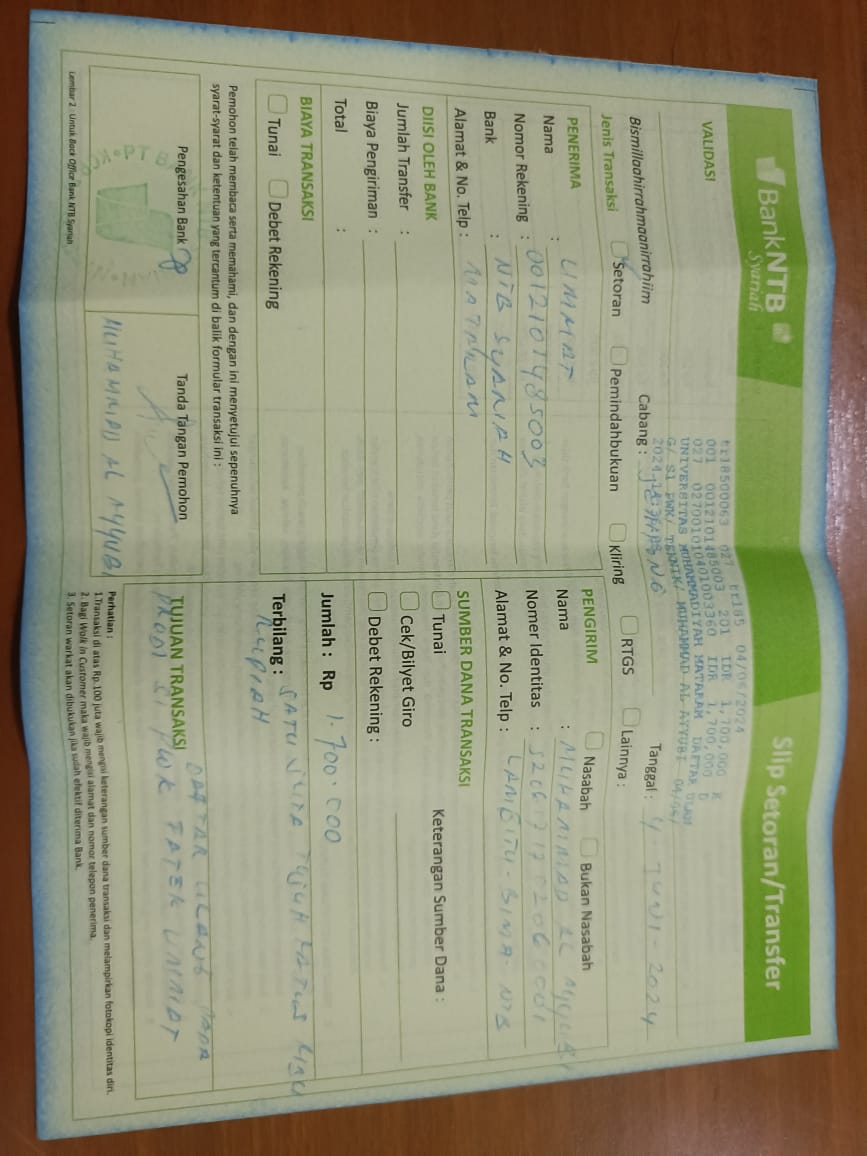 BankNTB
Syariah
Slip Setoran/Transfer
VALIDASI
tr18500063 027 tr185 04/06/2024
001 0012101485003 201 IDR 1,700,000 K
027 027001010401003360 IDR 1,700,000 D
UNIVERSITAS MUHAMMADIYAH MATARAM DAFTAR ULAN
G/ S1 PWK/ TEKNIK/ MUHAMMAD AL AYYUBI 04/06/
Bismillaahirrahmaanirrahiim
Cabang :
Tanggal : 4 JUNI - 2024
Jenis Transaksi Setoran Pemindahbukuan Kliring RTGS Lainnya :
PENERIMA
Nama : UMMAT
Nomor Rekening : 0012101485003
Bank : NTB SYARIAH
Alamat & No. Telp : MATARAM
PENGIRIM Nasabah Bukan Nasabah
Nama : MUHAMMAD AL AYYUBI
Nomer Identitas :
Alamat & No. Telp : LAMBITU - BIMA - NTB
DIISI OLEH BANK
Jumlah Transfer :
Biaya Pengiriman :
Total :
SUMBER DANA TRANSAKSI
Tunai Keterangan Sumber Dana :
Cek/Bilyet Giro
Debet Rekening :
BIAYA TRANSAKSI
Tunai Debet Rekening
Jumlah : Rp 1.700.000
Terbilang : SATU JUTA TUJUH RATUS RIBU
RUPIAH
Pemohon telah membaca serta memahami, dan dengan ini menyetujui sepenuhnya
syarat-syarat dan ketentuan yang tercantum di balik formular transaksi ini :
Pengesahan Bank
Tanda Tangan Pemohon
MUHAMMAD AL AYYUBI
TUJUAN TRANSAKSI DAFTAR ULANG PADA
PRODI S1 PWK FATEK UMMAT
Perhatian :
1.Transaksi di atas Rp.100 juta wajib mengisi keterangan sumber dana transaksi dan melampirkan fotokopi identitas diri.
2. Bagi Walk in Customer maka wajib mengisi alamat dan nomor telepon penerima.
3. Setoran warkat akan dibukukan jika sudah efektif diterima Bank.
Lembar 2 : Untuk Back Office Bank NTB Syariah